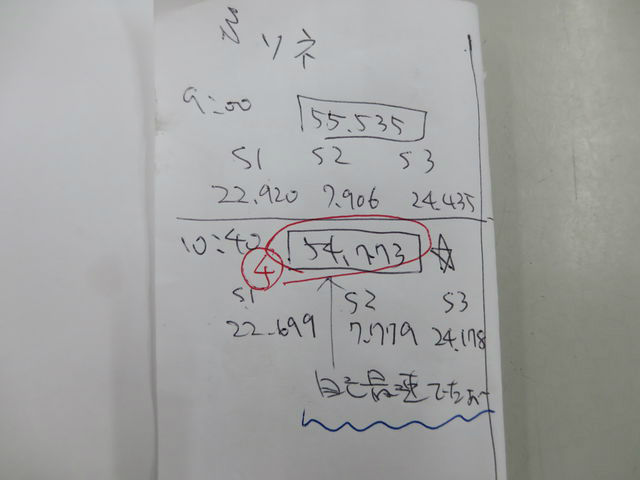 ミツネ
9:00 55.535
S1 S2 S3
22.920 7.906 24.435
10:40 54.773 ☆
④
S1 S2 S3
22.699 7.779 24.178
自己最速で